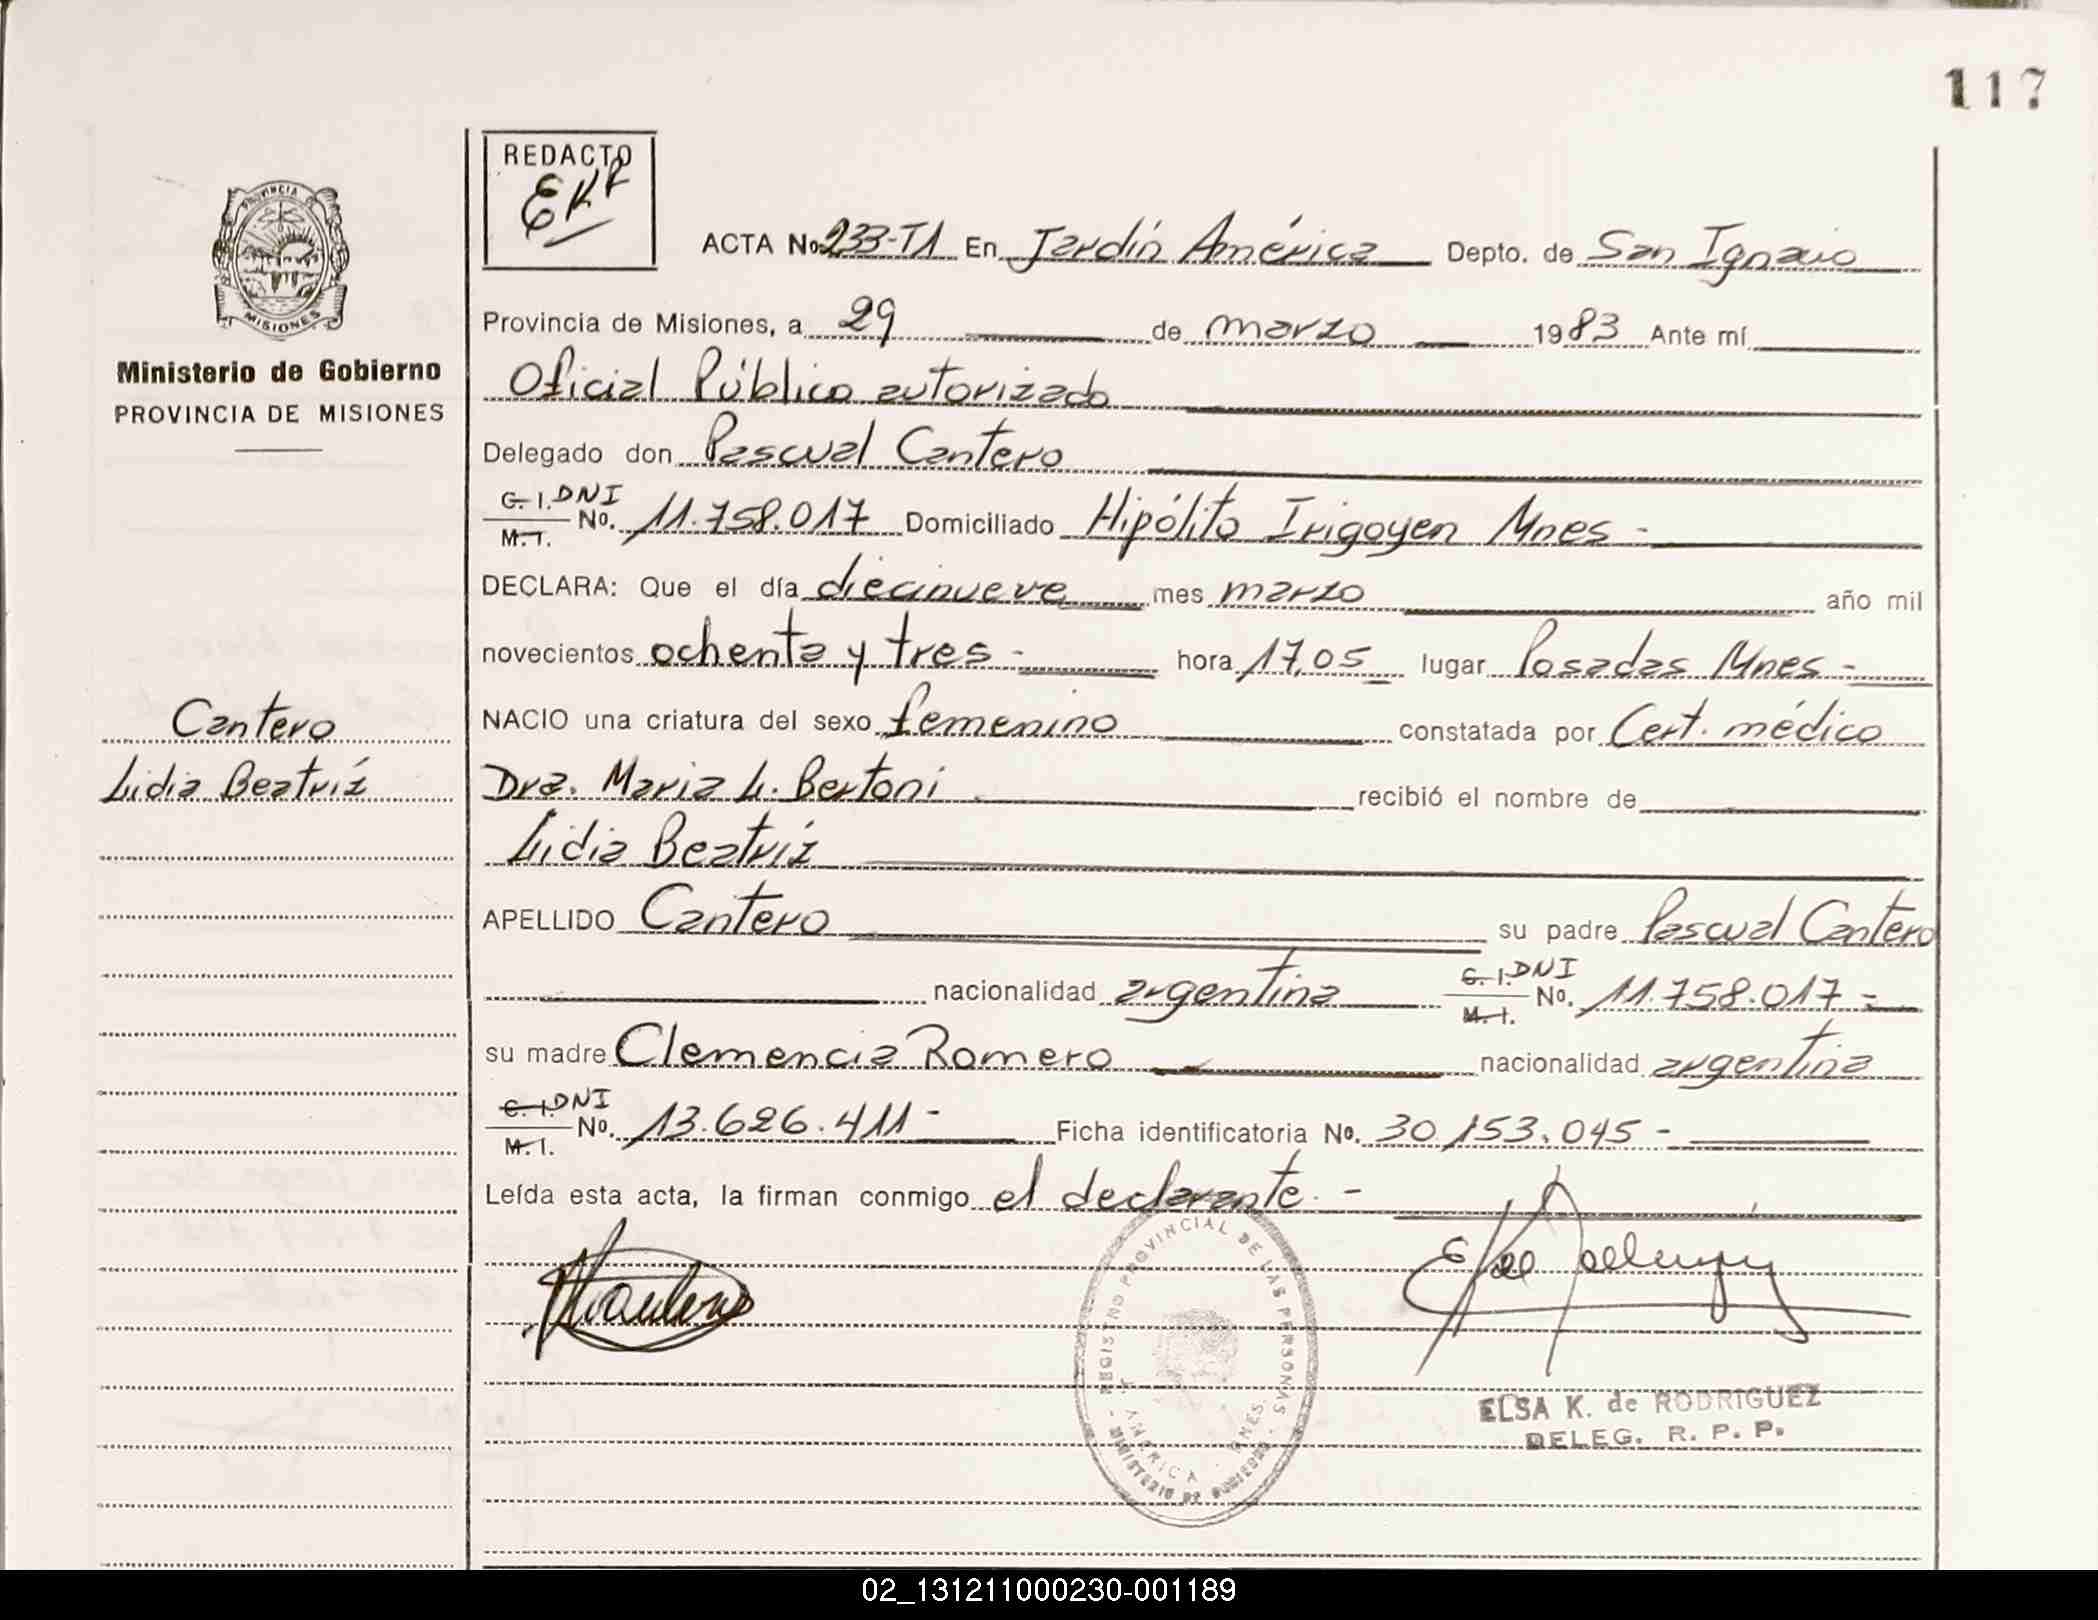 117
REDACTO
EKR
ACTA No 233-T1 En Jardín América Depto. de San Ignacio
PROVINCIA DE
MISIONES
Provincia de Misiones, a 29 de marzo 1983 Ante mí
Ministerio de Gobierno
PROVINCIA DE MISIONES
Oficial Público autorizado
Delegado don Pascual Cantero
C. I. DNI
M. I. No. 11.758.017 Domiciliado Hipólito Irigoyen Mnes -
DECLARA: Que el día diecinueve mes marzo año mil
novecientos ochenta y tres - hora 17,05 lugar Posadas Mnes -
Cantero
Lidia Beatríz
NACIO una criatura del sexo femenino constatada por Cert. médico
Dra. Maria L. Bertoni recibió el nombre de
Lidia Beatríz
APELLIDO Cantero su padre Pascual Cantero
nacionalidad argentina C. I. DNI M. I. No. 11.758.017 -
su madre Clemencia Romero nacionalidad argentina
C. I. DNI
M. I. No. 13.626.411 - Ficha identificatoria No. 30.153.045 -
Leída esta acta, la firman conmigo el declarante. -
REGISTRO PROVINCIAL DE LAS PERSONAS
J. AMERICA - MNES.
MINISTERIO DE GOBIERNO
ELSA K. de RODRIGUEZ
DELEG. R. P. P.
02_131211000230-001189